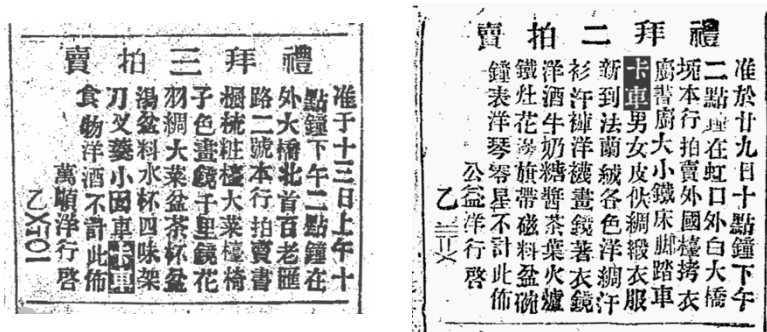 禮拜三拍賣
准于十三日上午十
點鐘下午二點鐘在
外大橋北首百老匯
路二號本行拍賣書
櫥梳粧檯大菜檯椅
子色畫鏡子里鏡花
羽綢大菜盆茶杯盆
湯盆料水杯四味架
刀叉羹小囡車卡車
食物洋酒不計此佈
萬順洋行啓
乙
禮拜二拍賣
准於廿九日十點鐘下午
二點鐘在虹口外白大橋
堍本行拍賣外國檯拷衣
廚書廚大小鐵床脚踏車
卡車男女皮伙綢緞衣服
新到法蘭絨各色洋綢汗
衫汗褲洋襪畫鏡著衣鏡
洋酒牛奶糖醬茶葉火爐
鐵灶花旗帶磁料盆碗
鐘表洋琴零星不計此佈
公益洋行啓
乙